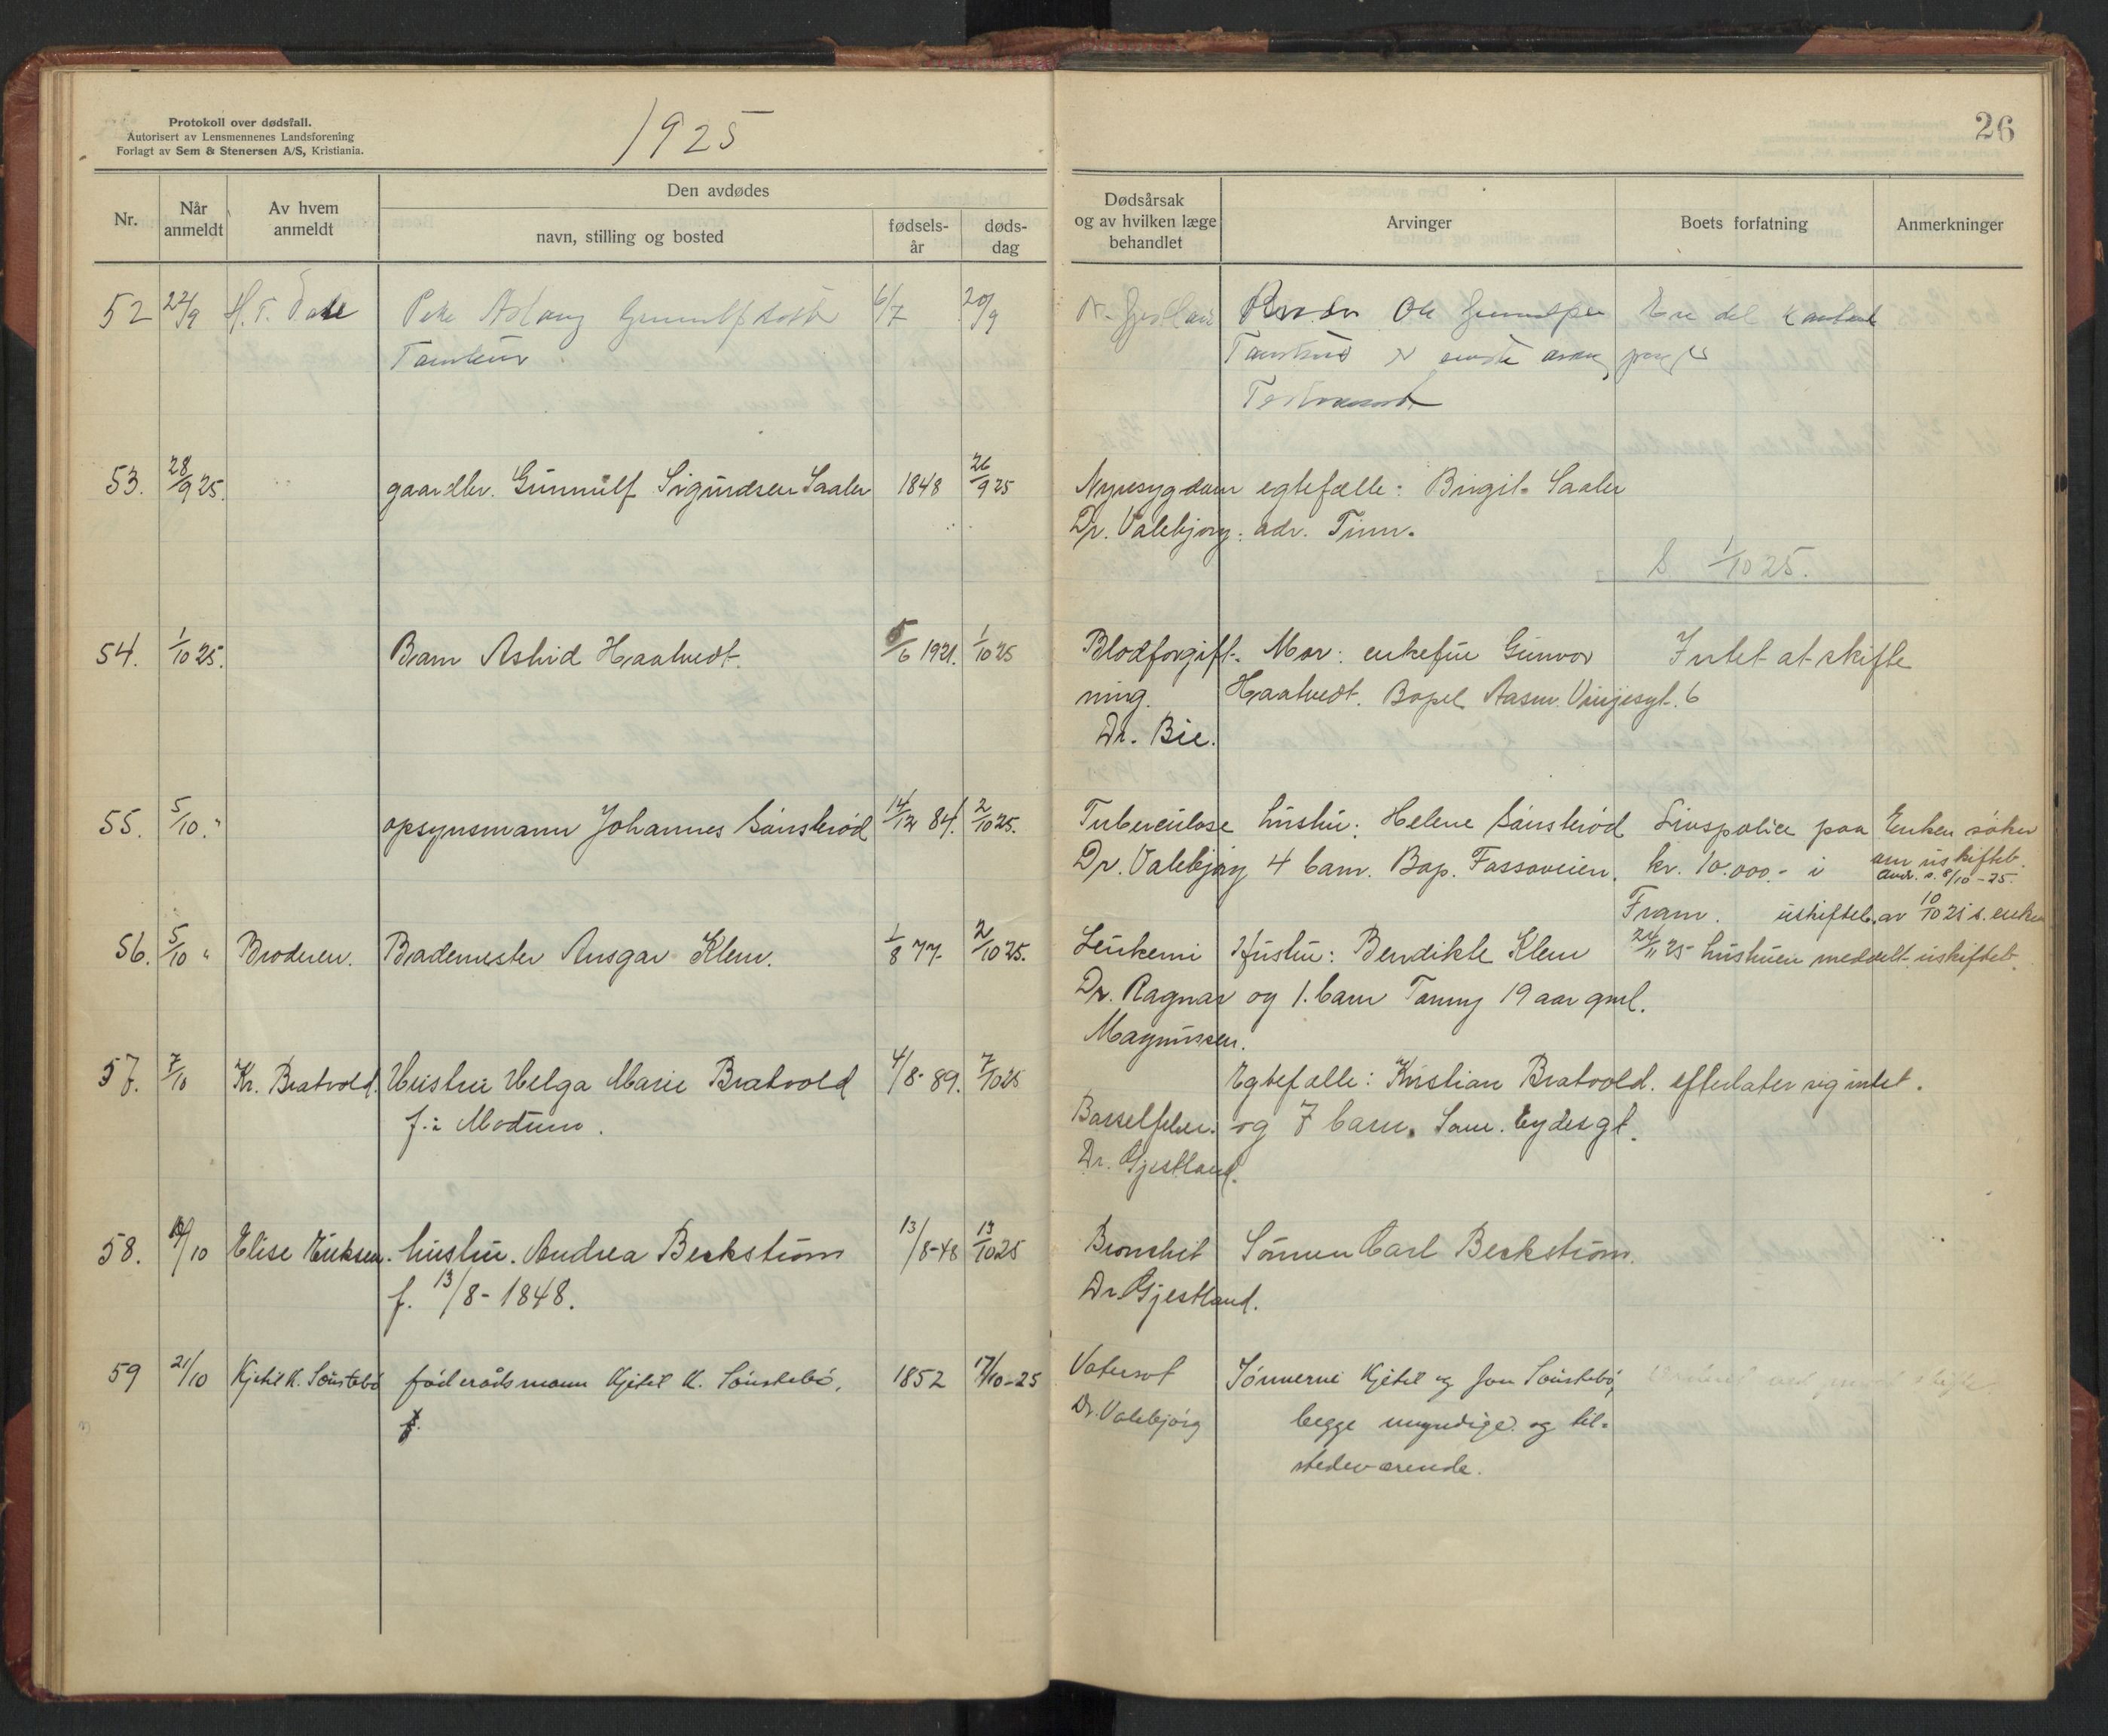 Protokoll over dødsfall.
Autorisert av Lensmennenes Landsforening
Forlagt av Sem & Stenersen A/S, Kristiania.
1925
26
Nr.
Når anmeldt
Av hvem anmeldt
Den avdødes
navn, stilling og bosted
fødsels-år
døds-dag
Dødsårsak og av hvilken læge behandlet
Arvinger
Boets forfatning
Anmerkninger
52 22/9 H. T. Dale Pike Aslaug 6/7 20/9 Ole En del kontant
Testament
53. 28/9 25. gaardbr. Gunnulf Sigurdsen Saaler 1848 26/9 25 Nyresygdom egtefælle: Birgit Saaler
Dr. Valebjørg. adr. Tinn.
S. 1/10 25.
54. 1/10 25. Barn Astrid Haatvedt. 5/6 1921. 1/10 25 Blodforgift- Mor: enkefru Gunvor Intet at skifte
ning. Haatvedt. Bopel Aasm. Vinjesgt. 6
Dr. Bie.
55. 5/10 " opsynsmann Johannes Sønsterød 14/12 84. 2/10 25. Tuberculose hustru: Helene Sønsterød Livspolice paa Enken søker
Dr. Valebjørg 4 barn. Bop. Fossoveien. kr. 10.000.- i om uskifteb.
8/10-25.
Fram. uskifteb. av 10/10 25 s. enken
56. 5/10 " Broderen. Bademester Ansgar Klem. 1/8 77. 2/10 25. Leukemi Hustru: Bendikte Klem 24/11 25 hustruen meddelt uskifteb.
Dr. Ragnar og 1. barn 19 aar gml.
Magnussen.
57. 7/10 Kr. Bratvold. Hustru Helga Marie Bratvold 4/8-89. 7/10 25 Egtefælle: Kristian Bratvold. efterlater sig intet.
f. i Modum. Barselfeber. og 7 barn. Sam. Eydesgt.
Dr. Gjestland.
58. /10 Elise Eriksen. hustru. Andrea Beckstrøm 13/8-48 13/10 25 Bronchit Sønnen Carl Beckstrøm.
f. 13/8-1848. Dr. Gjestland.
59 21/10 Kjetil K. Sønstebø føderådsmann Kjetil K. Sønstebø, 1852 17/10-25 Vatersot Sønnerne Kjetil og Jon Sønstebø,
f. Dr. Valebjørg begge myndige og til-
stedeværende.